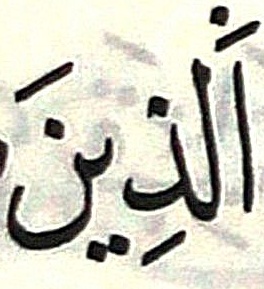 الَذِينَ